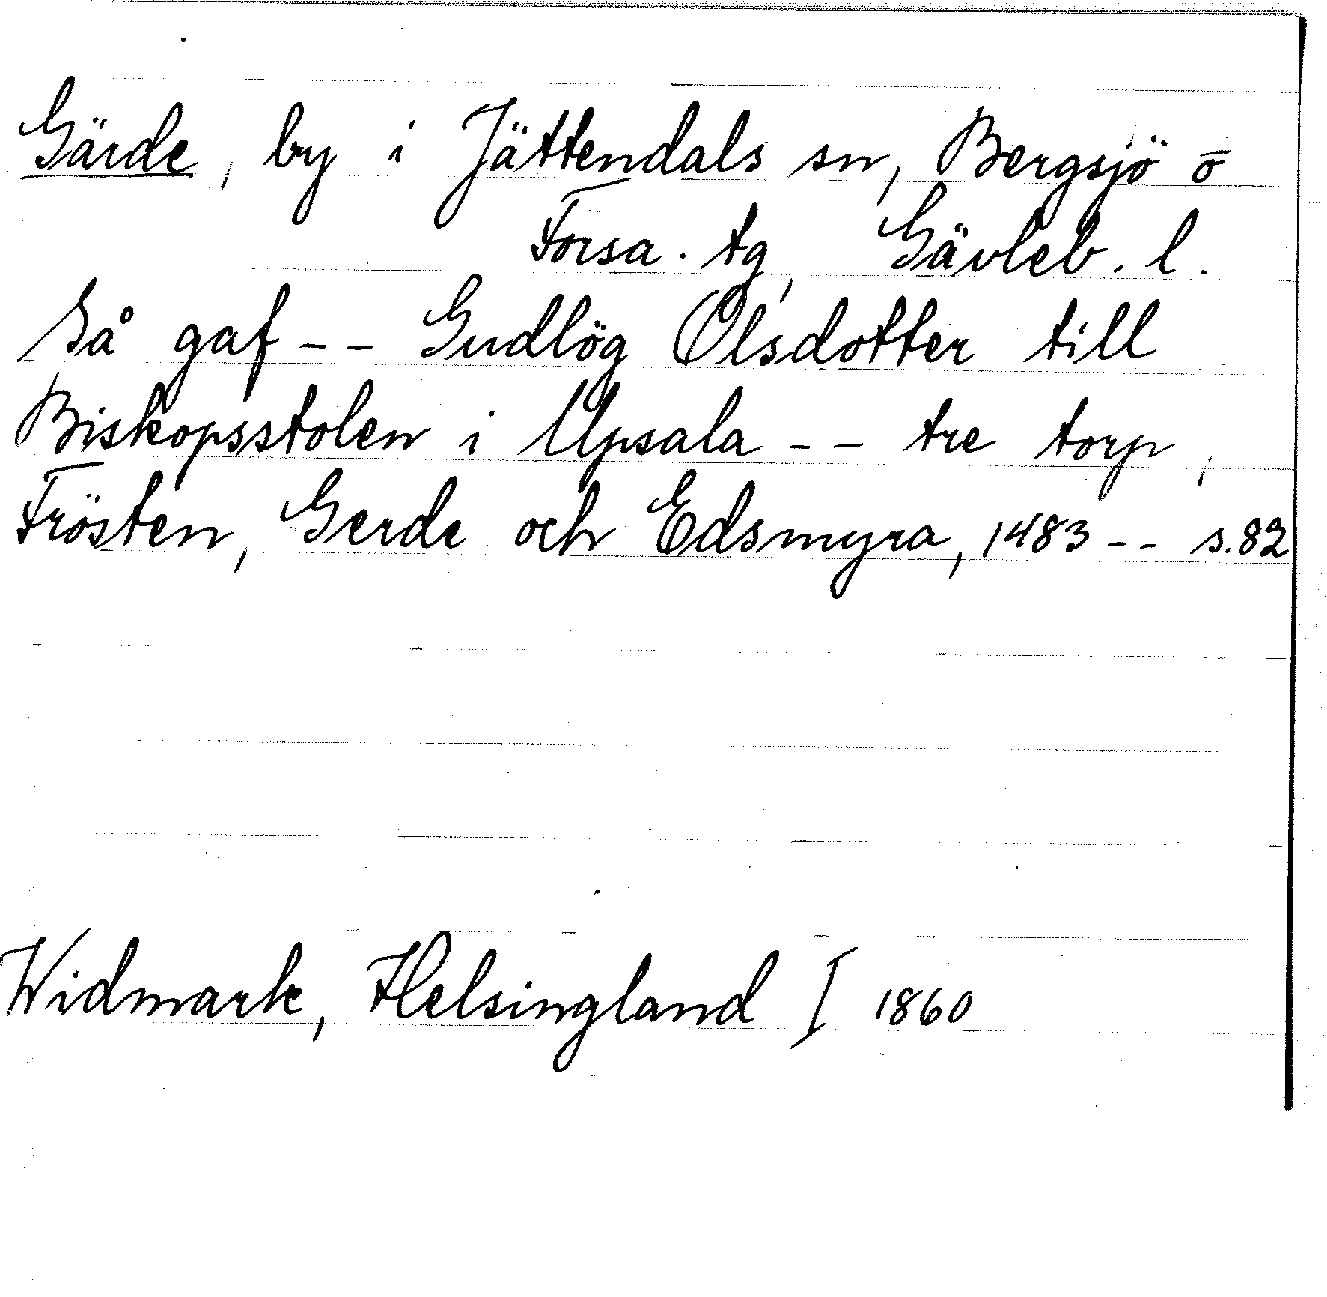 Gärde, by i Jättendals sn, Bergsjö o
Forsa. tg, Gävleb. l.
Så gaf -- Gudlög Olsdotter till
Biskopsstolen i Upsala -- tre torp,
Frösten, Gerde och Edsmyra, 1483 -- s.82
Widmark, Helsingland I 1860